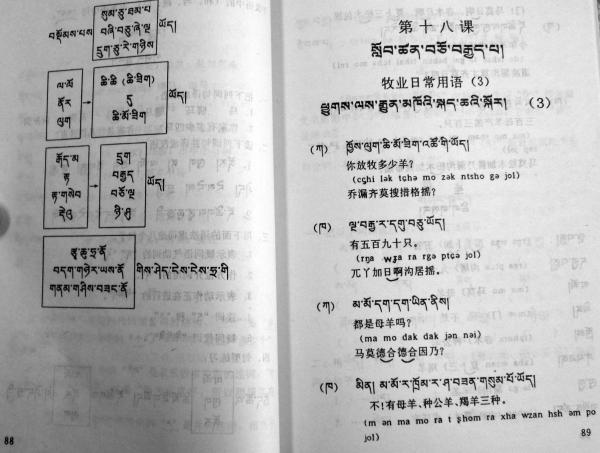 བསྡོམས་པས
སུམ་ཅུ་ཐམ་པ
བཞི་བཅུ་ཞེ་ལྔ
དྲུག་ཅུ་རེ་གཉིས
ཡོད།
ལ་ལོ
ནོར
ལུག
ཆི་ཆི (ཆི་ཟིག)
དུ
ཆི་མོ་ཟིག
ཡོད།
རྒོད་མ
རྟ
རྟ་གསེབ
རྡེའུ
དྲུག
བརྒྱད
བཅོ་ལྔ
ཉི་ཤུ
ཡོད།
བདག་གཉེར་ཡས་ནོ
གནམ་གཤིས་བཟང་ནོ
གིས་ཤེད་ངེས་ངེས་ཧྲ་གི
88
第十八课
སློབ་ཚན་བཅོ་བརྒྱད་པ།
牧业日常用语（3）
ཕྱུགས་ལས་རྒྱུན་མཁོའི་སྐད་ཆའི་སྐོར། (3)
(ཀ) ཁྱོས་ལུག་ཆི་མོ་ཟིག་འཚོ་གི་ཡོད།
你放牧多少羊?
(cçhi lək tɕhə mo zək ntsho gə jol)
乔漏齐莫搜措格摇?
(ཁ) ལྔ་བརྒྱ་ར་དགུ་བཅུ་ཡོད།
有五百九十只。
(rŋa wɟa ra rgə ptɕə jol)
兀丫加日啊肉居摇。
(ཀ) མ་མོ་དག་དག་ཡིན་ནིས།
都是母羊吗?
(ma mo dak dak jən nəi)
马莫德合德合因乃?
(ཁ) མིན། མ་མོ་ར་ཁྲོམ་ར་ཤ་བཟན་གསུམ་པོ་ཡོད།
不!有母羊、种公羊、羯羊三种。
(m ən ma mo ra t ʂhom ra xha wzan hsh əm po
jol)
89